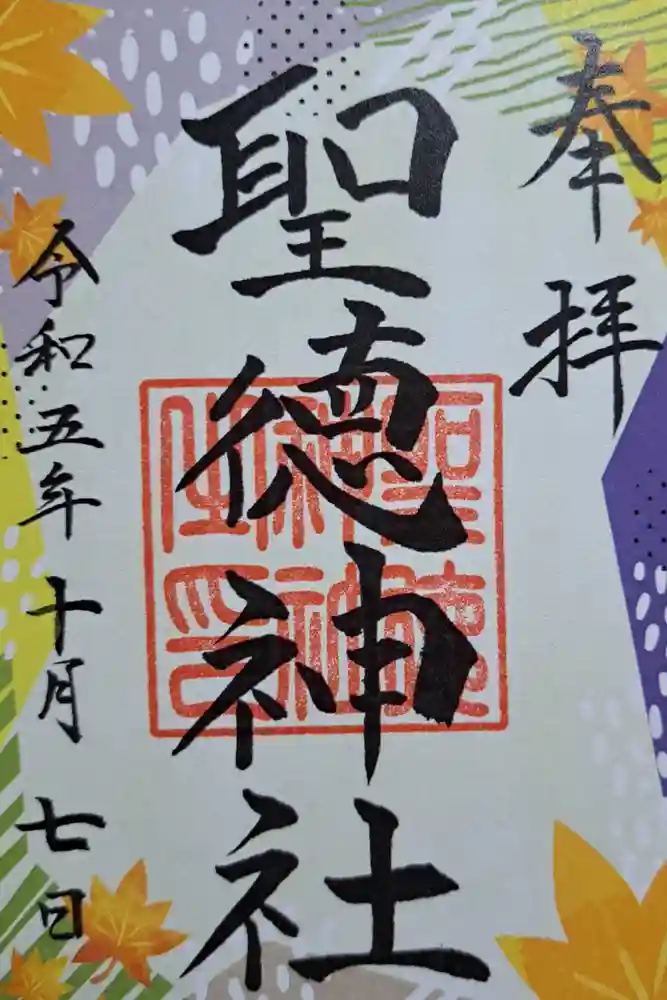 奉拝
聖徳神社
聖徳神社之印
令和五年十月七日